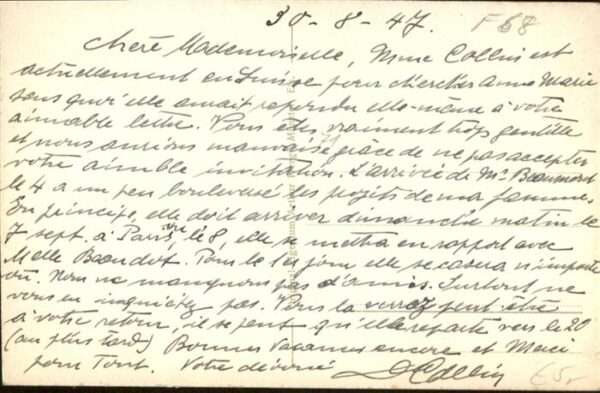 30-8-47. F68
Chère Mademoiselle, Mme Collin est
actuellement en Suisse pour chercher Anne Marie
sans quoi elle aurait répondu elle-même à votre
aimable lettre. Vous êtes vraiment trop gentille
et nous aurions mauvaise grâce de ne pas accepter
votre aimable invitation. L'arrivée de Mr Beaumont
le 4 a un peu bouleversé les projets de ma femme.
En principe, elle doit arriver dimanche matin le
7 sept. à Paris, le 8, elle se mettra en rapport avec
Melle Baudot. Pour le 1er jour elle se casera n'importe
où. Nous ne manquons pas d'amis. Surtout ne
vous en inquiétez pas. Vous la verrez peut être
à votre retour, il se peut qu'elle reparte vers le 20
(au plus tard) Bonnes Vacances encore et Merci
pour Tout. Votre dévoué Collin